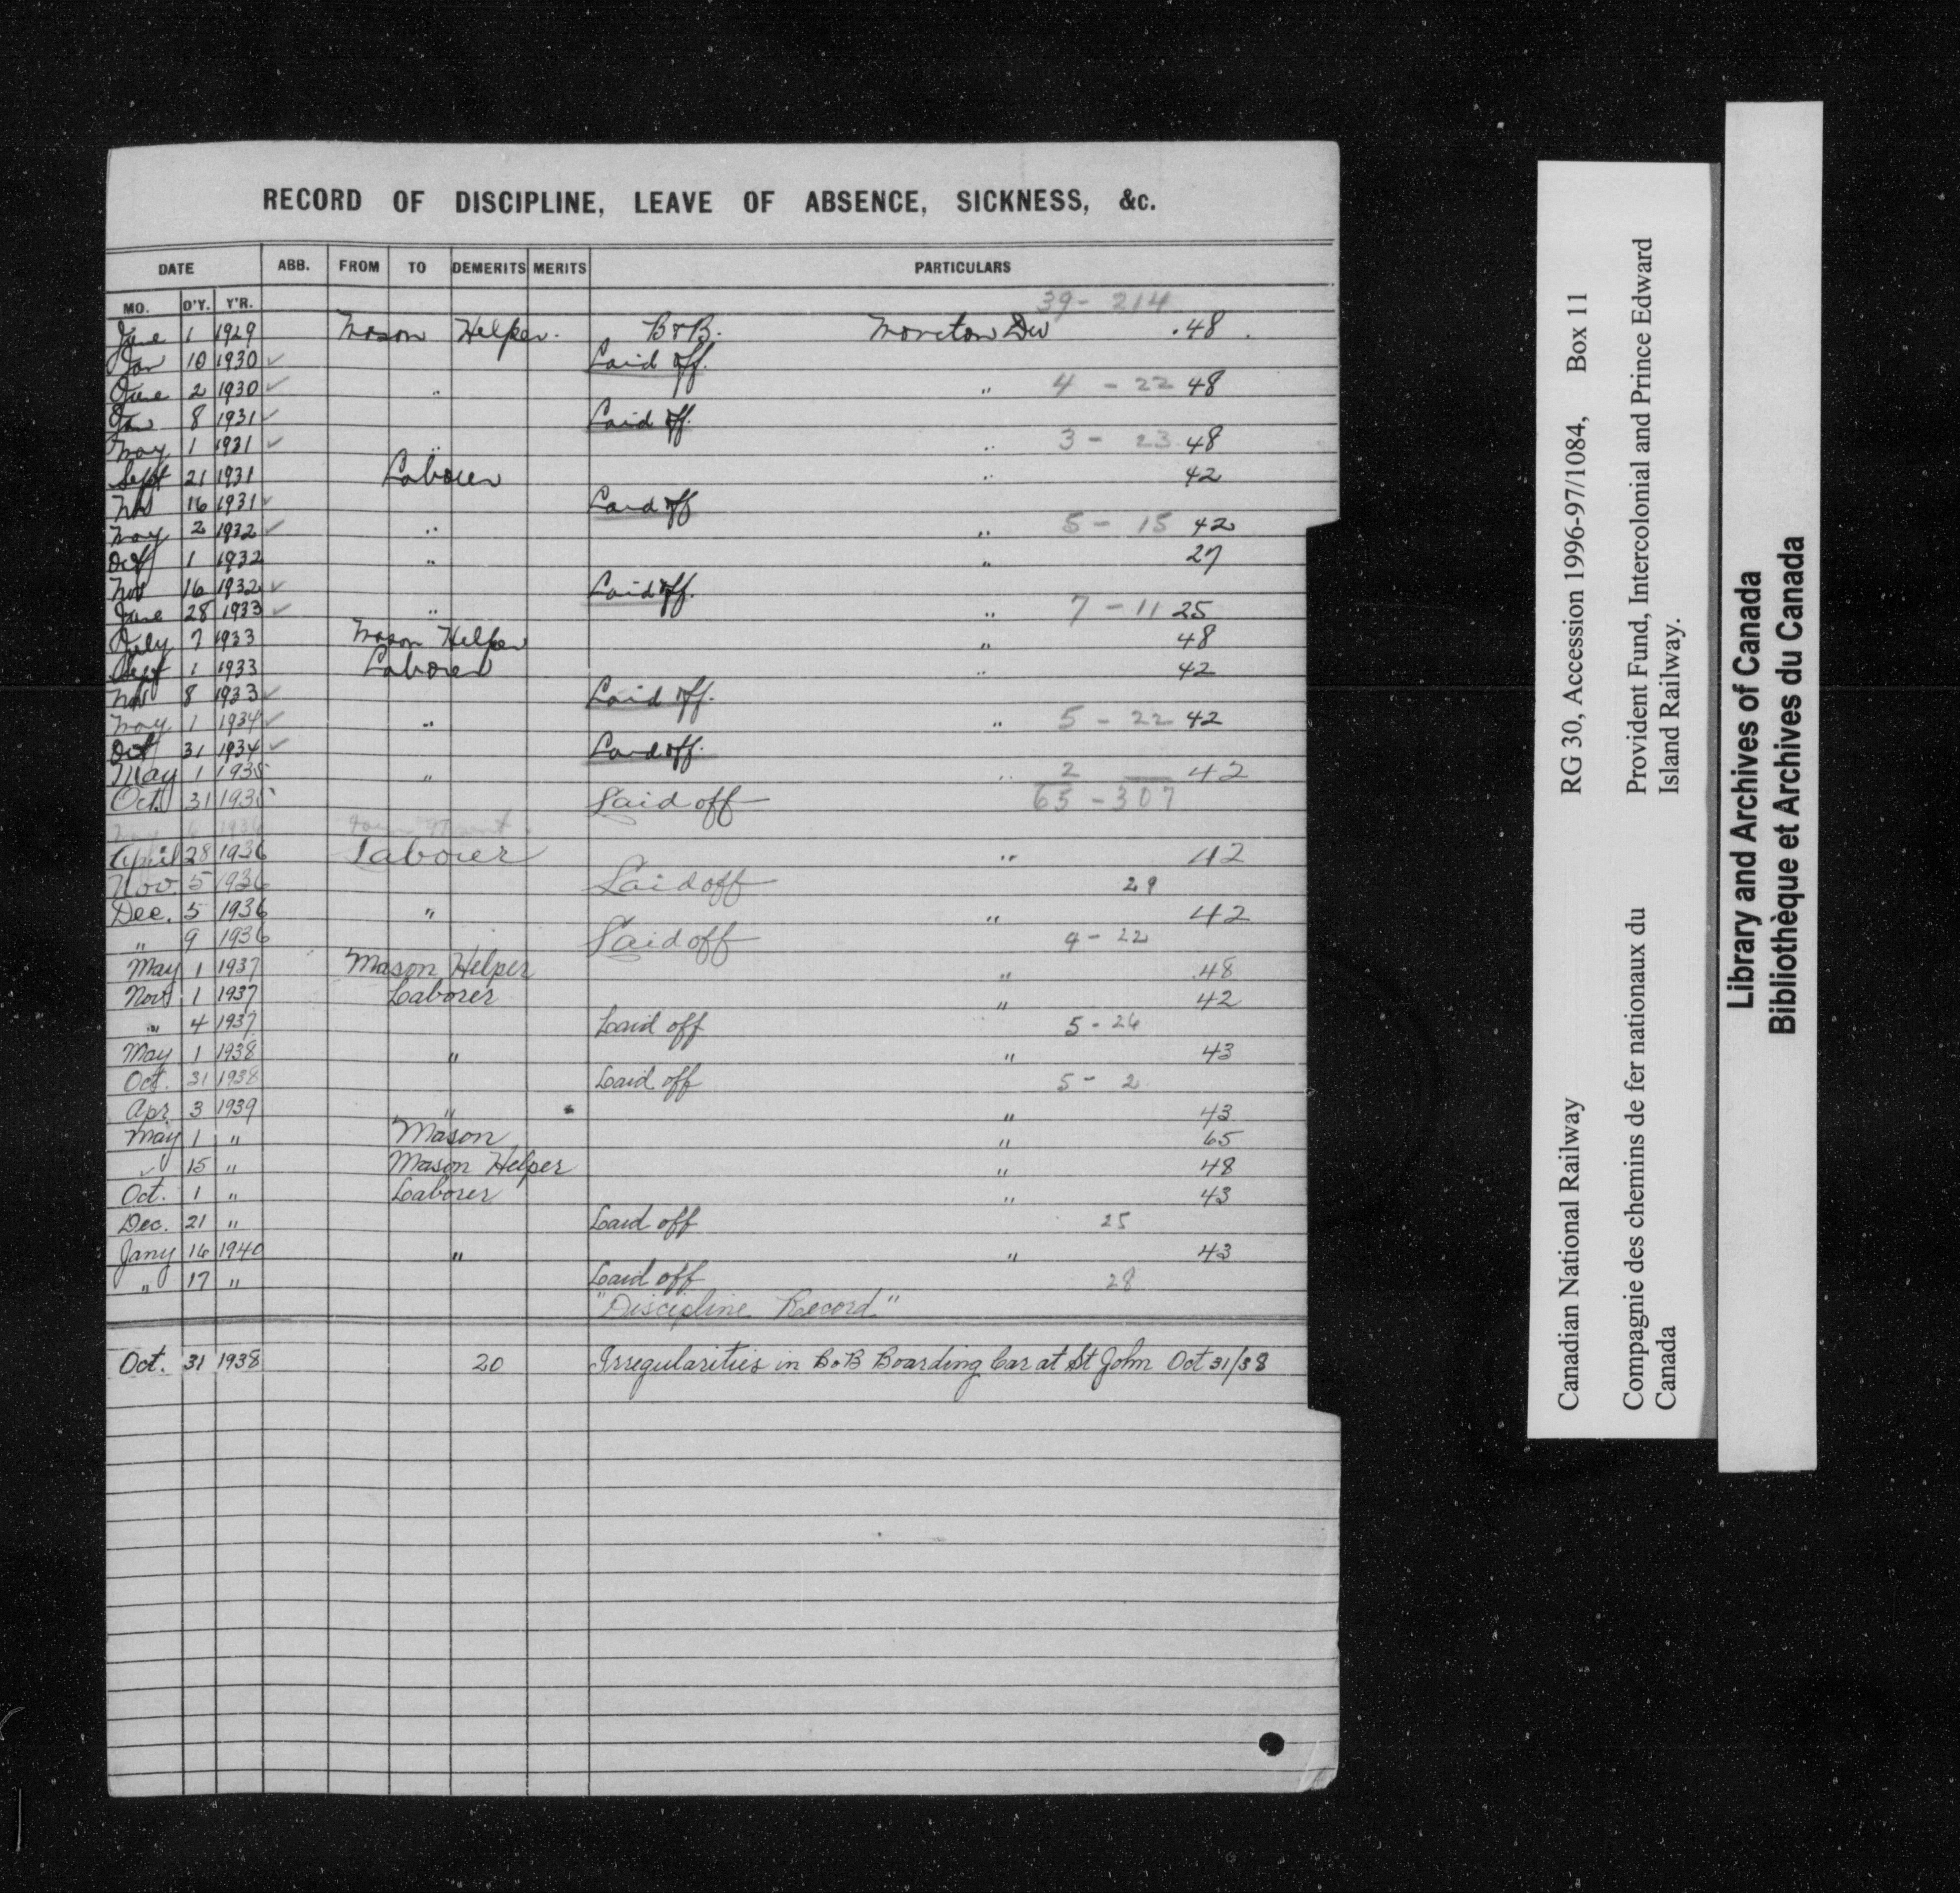 RECORD OF DISCIPLINE, LEAVE OF ABSENCE, SICKNESS, &c.
DATE ABB. FROM TO DEMERITS MERITS PARTICULARS
MO. D'Y. Y'R. 39 - 214
June 1 1929 Mason Helper. B & B. Moncton Div .48.
Jan 10 1930 ✓ Laid off.
June 2 1930 ✓ " " 4 - 22 48
Jan 8 1931 ✓ Laid off.
May 1 1931 ✓ " " 3 - 23 48
Sept 21 1931 Laborer " 42
Nov 16 1931 ✓ Laid off
May 2 1932 ✓ " " 5 - 15 42
Oct 1 1932 " " 27
Nov 16 1932 ✓ Laid off.
June 28 1933 ✓ " " 7 - 11 25
July 7 1933 Mason Helper " 48
Sept 1 1933 Laborer " 42
Nov 8 1933 ✓ Laid off.
May 1 1934 ✓ " " 5 - 22 42
Oct 31 1934 ✓ Laid off.
May 1 1935 " " 2 — 42
Oct. 31 1935 Laid off 65 - 307
1936
April 28 1936 Laborer " 42
Nov. 5 1936 Laid off 29
Dec. 5 1936 " " 42
" 9 1936 Laid off 4 - 22
May 1 1937 Mason Helper " 48
Nov 1 1937 Laborer " 42
" 4 1937 Laid off 5 - 26
May 1 1938 " " 43
Oct. 31 1938 Laid off 5 - 2
Apr. 3 1939 " " 43
May 1 " Mason " 65
" 15 " Mason Helper " 48
Oct. 1 " Laborer " 43
Dec. 21 " Laid off 25
Jany 16 1940 " " 43
" 17 " Laid off 28
"Discipline Record"
Oct. 31 1938 20 Irregularities in B & B Boarding Car at St John Oct 31/38
Canadian National Railway RG 30, Accession 1996-97/1084, Box 11
Compagnie des chemins de fer nationaux du Canada Provident Fund, Intercolonial and Prince Edward Island Railway.
Library and Archives of Canada
Bibliothèque et Archives du Canada